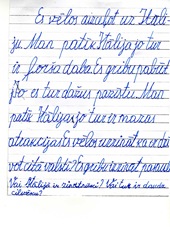 Es vēlos aizbraukt uz Itāli-
ju. Man patīk Itālija jo tur
ir forša daba. Es gribu pabūt
jo, es tur dažus pazīstu. Man
patīk Itālijas jo tur ir mazas
atrakcijas. Es vēlos uzzināt kā ir dzī
vot citā valstī? Es gribu uzzināt
Vai Itālija ir Vai tur ir daudz
cilvēku?